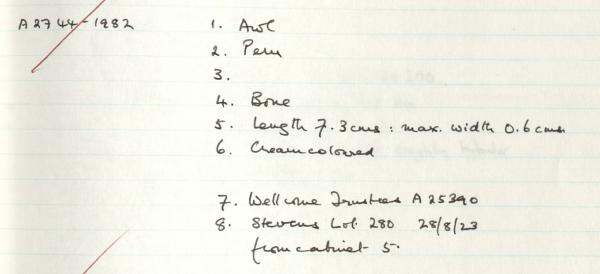 A2744-1982 1. Awl
2. Peru
3.
4. Bone
5. Length 7.3cms : max. width 0.6cms
6. Cream coloured
7. Wellcome Trustees A25390
8. Stevens Lot 280 28/8/23
from cabinet 5.